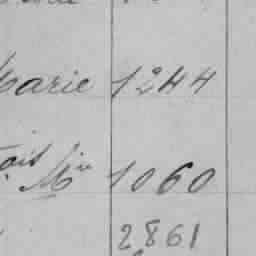 Marie 1244
ois Mie 1060
2861